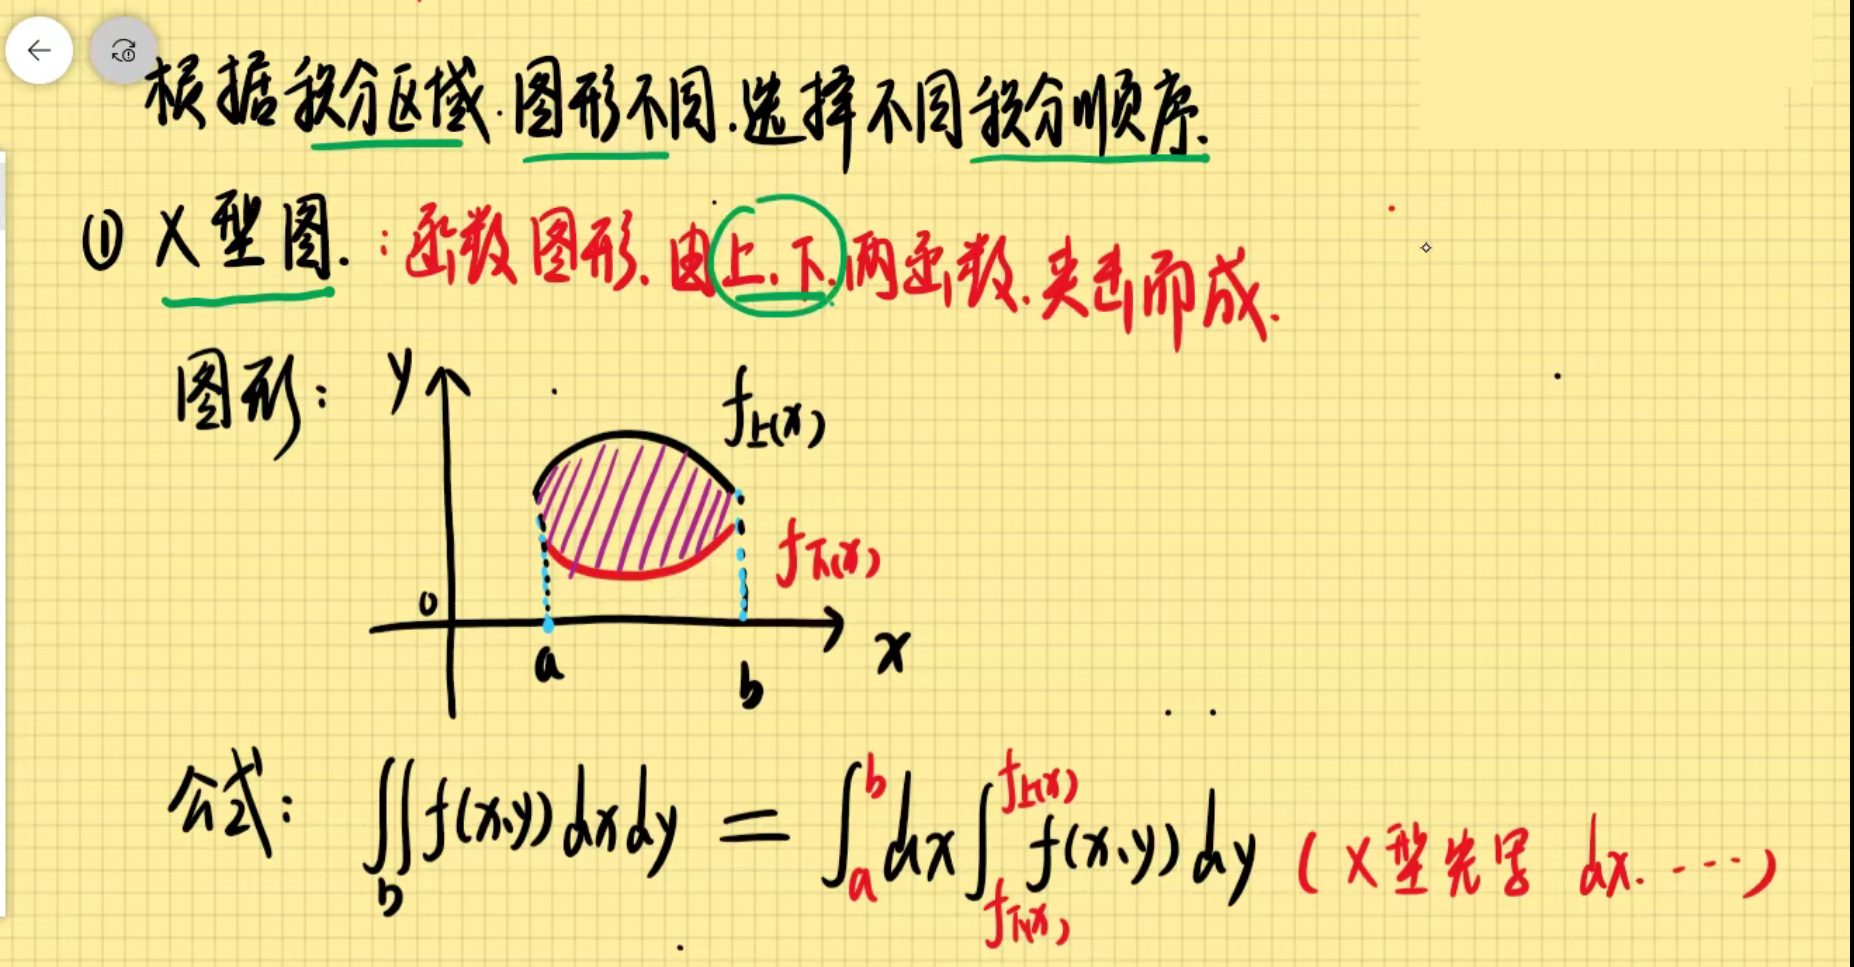 根据积分区域.图形不同.选择不同积分顺序.
① X型图.:函数图形.由上.下.两函数.夹击而成.
图形:
y
f上(x)
f下(x)
0
a
b
x
公式: ∬D f(x,y)dxdy = ∫_a^b dx ∫_{f下(x)}^{f上(x)} f(x,y)dy (X型先写 dx.…)